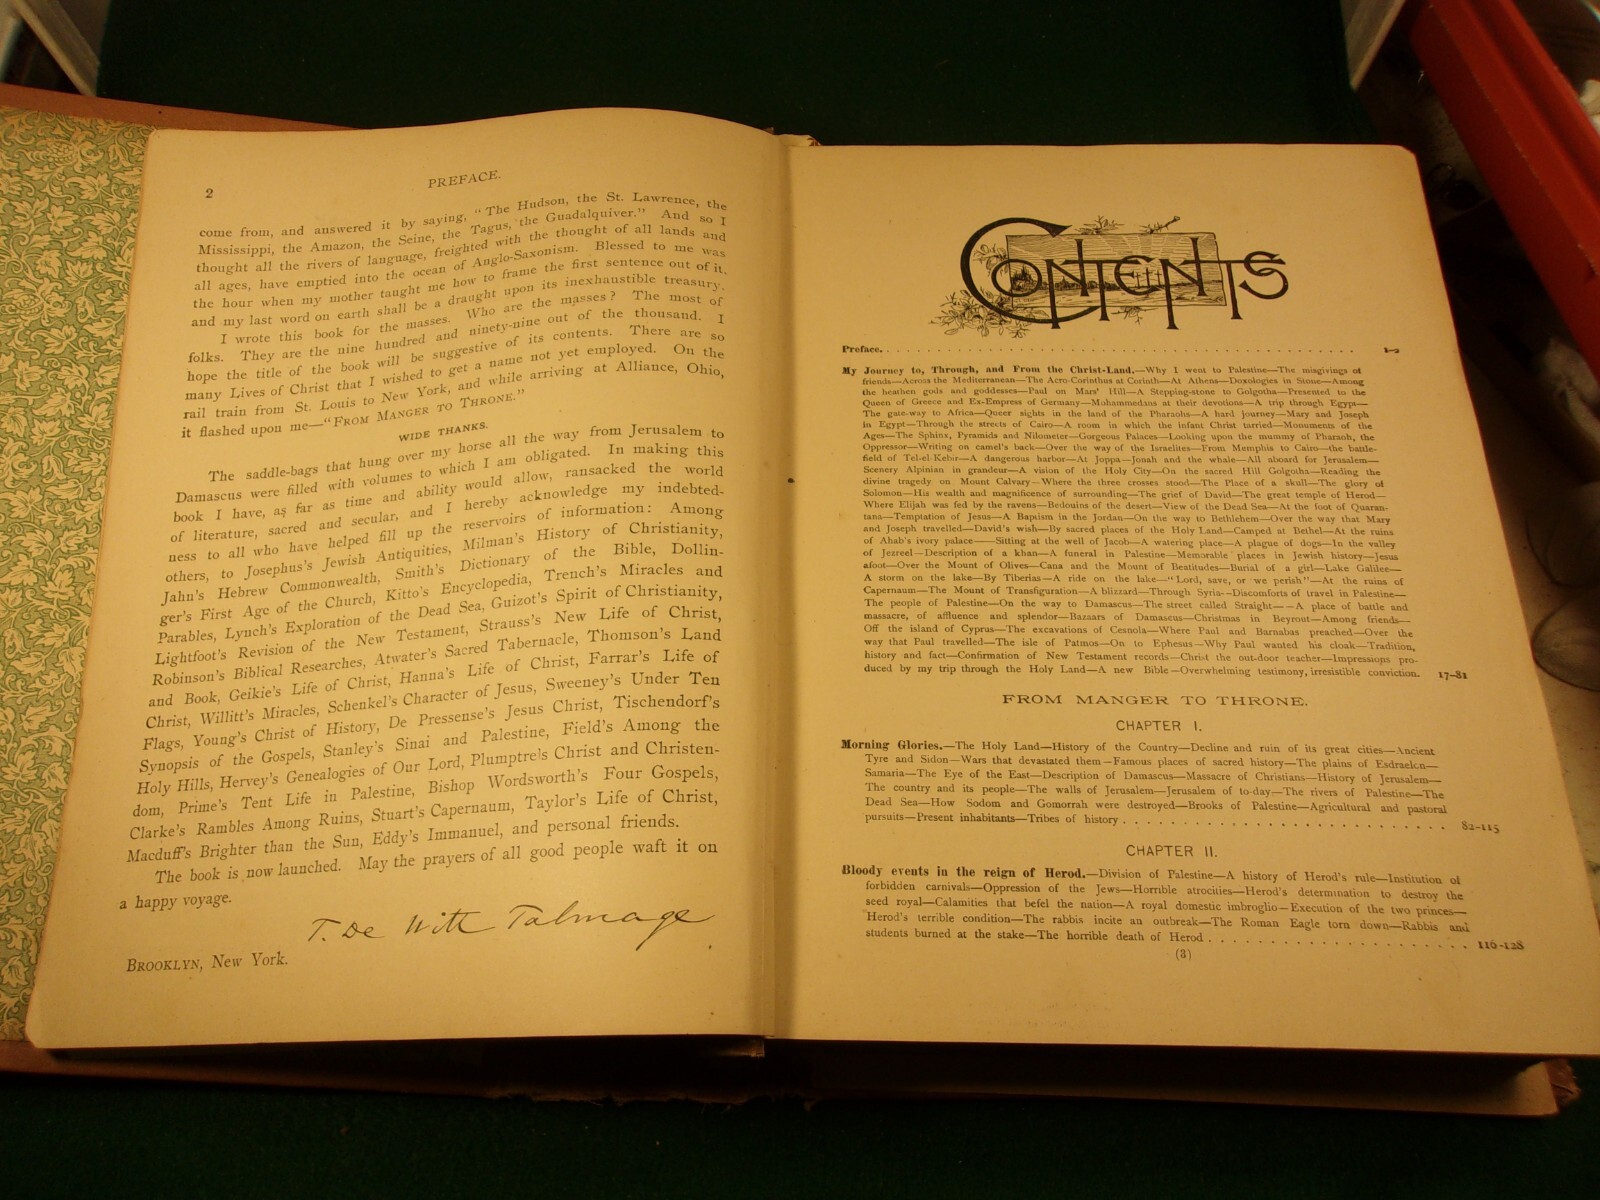 2
PREFACE.
come from, and answered it by saying, "The Hudson, the St. Lawrence, the
Mississippi, the Amazon, the Seine, the Tagus, the Guadalquiver." And so I
thought all the rivers of language, freighted with the thought of all lands and
all ages, have emptied into the ocean of Anglo-Saxonism. Blessed to me was
the hour when my mother taught me how to frame the first sentence out of it,
and my last word on earth shall be a draught upon its inexhaustible treasury.
I wrote this book for the masses. Who are the masses? The most of
folks. They are the nine hundred and ninety-nine out of the thousand. I
hope the title of the book will be suggestive of its contents. There are so
many Lives of Christ that I wished to get a name not yet employed. On the
rail train from St. Louis to New York, and while arriving at Alliance, Ohio,
it flashed upon me—"FROM MANGER TO THRONE."
WIDE THANKS.
The saddle-bags that hung over my horse all the way from Jerusalem to
Damascus were filled with volumes to which I am obligated. In making this
book I have, as far as time and ability would allow, ransacked the world
of literature, sacred and secular, and I hereby acknowledge my indebted-
ness to all who have helped fill up the reservoirs of information: Among
others, to Josephus's Jewish Antiquities, Milman's History of Christianity,
Jahn's Hebrew Commonwealth, Smith's Dictionary of the Bible, Dollin-
ger's First Age of the Church, Kitto's Encyclopedia, Trench's Miracles and
Parables, Lynch's Exploration of the Dead Sea, Guizot's Spirit of Christianity,
Lightfoot's Revision of the New Testament, Strauss's New Life of Christ,
Robinson's Biblical Researches, Atwater's Sacred Tabernacle, Thomson's Land
and Book, Geikie's Life of Christ, Hanna's Life of Christ, Farrar's Life of
Christ, Willitt's Miracles, Schenkel's Character of Jesus, Sweeney's Under Ten
Flags, Young's Christ of History, De Pressense's Jesus Christ, Tischendorf's
Synopsis of the Gospels, Stanley's Sinai and Palestine, Field's Among the
Holy Hills, Hervey's Genealogies of Our Lord, Plumptre's Christ and Christen-
dom, Prime's Tent Life in Palestine, Bishop Wordsworth's Four Gospels,
Clarke's Rambles Among Ruins, Stuart's Capernaum, Taylor's Life of Christ,
Macduff's Brighter than the Sun, Eddy's Immanuel, and personal friends.
The book is now launched. May the prayers of all good people waft it on
a happy voyage.
T. De Witt Talmage
BROOKLYN, New York.
CONTENTS
Preface. . . . . . . . . . . . . . . . . . . . . . . 1-2
My Journey to, Through, and From the Christ-Land.—Why I went to Palestine—The misgivings of
friends—Across the Mediterranean—The Acro-Corinthus at Corinth—At Athens—Doxologies in Stone—Among
the heathen gods and goddesses—Paul on Mars' Hill—A Stepping-stone to Golgotha—Presented to the
Queen of Greece and Ex-Empress of Germany—Mohammedans at their devotions—A trip through Egypt—
The gate-way to Africa—Queer sights in the land of the Pharaohs—A hard journey—Mary and Joseph
in Egypt—Through the streets of Cairo—A room in which the infant Christ tarried—Monuments of the
Ages—The Sphinx, Pyramids and Nilometer—Gorgeous Palaces—Looking upon the mummy of Pharaoh, the
Oppressor—Writing on camel's back—Over the way of the Israelites—From Memphis to Cairo—the battle-
field of Tel-el-Kebir—A dangerous harbor—At Joppa—Jonah and the whale—All aboard for Jerusalem—
Scenery Alpinian in grandeur—A vision of the Holy City—On the sacred Hill Golgotha—Reading the
divine tragedy on Mount Calvary—Where the three crosses stood—The Place of a skull—The glory of
Solomon—His wealth and magnificence of surrounding—The grief of David—The great temple of Herod—
Where Elijah was fed by the ravens—Bedouins of the desert—View of the Dead Sea—At the foot of Quaran-
tana—Temptation of Jesus—A Baptism in the Jordan—On the way to Bethlehem—Over the way that Mary
and Joseph travelled—David's wish—By sacred places of the Holy Land—Camped at Bethel—At the ruins
of Ahab's ivory palace—Sitting at the well of Jacob—A watering place—A plague of dogs—In the valley
of Jezreel—Description of a khan—A funeral in Palestine—Memorable places in Jewish history—Jesus
afoot—Over the Mount of Olives—Cana and the Mount of Beatitudes—Burial of a girl—Lake Galilee—
A storm on the lake—By Tiberias—A ride on the lake—"Lord, save, or we perish"—At the ruins of
Capernaum—The Mount of Transfiguration—A blizzard—Through Syria—Discomforts of travel in Palestine—
The people of Palestine—On the way to Damascus—The street called Straight—A place of battle and
massacre, of affluence and splendor—Bazaars of Damascus—Christmas in Beyrout—Among friends—
Off the island of Cyprus—The excavations of Cesnola—Where Paul and Barnabas preached—Over the
way that Paul travelled—The isle of Patmos—On to Ephesus—Why Paul wanted his cloak—Tradition,
history and fact—Confirmation of New Testament records—Christ the out-door teacher—Impressions pro-
duced by my trip through the Holy Land—A new Bible—Overwhelming testimony, irresistible conviction. 17-81
FROM MANGER TO THRONE.
CHAPTER I.
Morning Glories.—The Holy Land—History of the Country—Decline and ruin of its great cities—Ancient
Tyre and Sidon—Wars that devastated them—Famous places of sacred history—The plains of Esdraelon—
Samaria—The Eye of the East—Description of Damascus—Massacre of Christians—History of Jerusalem—
The country and its people—The walls of Jerusalem—Jerusalem of to-day—The rivers of Palestine—The
Dead Sea—How Sodom and Gomorrah were destroyed—Brooks of Palestine—Agricultural and pastoral
pursuits—Present inhabitants—Tribes of history . . . . . . . . . . . . 82-115
CHAPTER II.
Bloody events in the reign of Herod.—Division of Palestine—A history of Herod's rule—Institution of
forbidden carnivals—Oppression of the Jews—Horrible atrocities—Herod's determination to destroy the
seed royal—Calamities that befel the nation—A royal domestic imbroglio—Execution of the two princes—
Herod's terrible condition—The rabbis incite an outbreak—The Roman Eagle torn down—Rabbis and
students burned at the stake—The horrible death of Herod . . . . . . . . . . 116-128
(3)